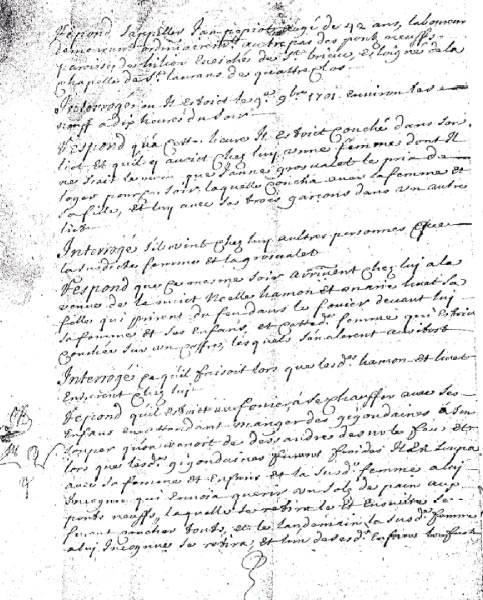 Repond s'appeller Jan papiot agé de 42 ans, laboureur
demeurant ordinairemt autre pas des ponts neuffs
parroisse de hilion Evesché de St brieuc, esloigné de la
Chapelle de St laurans de quattre clos
Interrogé ou Il Estoit le 9bre 1701. environ les
neuff a dix heures du soir
Respond qué cette heure Il estoit couché dans son
lict et quil y avoit chez luy une femme dont Il
ne scait le nom que Janne grosvalet le pria de
loger pour ce soir, laquelle coucha avec sa femme et
sa fille, et luy avec ses trois garçons dans un autre
lict
Interrogé sil vint chez luy autres personnes que
la susdicte femme et la grosvalet
Respond que ce mesme soir arrivent chez luy a la
venue de la nuict Noelle hamon et marie huet sa
fille qui prirent du feu dans le fouier devant luy
sa femme et ses Enfans, et cette de femme qui Estoit
couchée sur un coffre, lesquels sanalerent
Interrogé ce quil faisoit lors que lesd. hamon et huet
Estoient chez luy
Repond quil estoit au fouier, a se chauffer avec ses
Enfans en attendant manger des gigondaines a son
souper quon venoit de dessandre de sur le feu et
lors que lesd. gigondaines furent froides Il En soupa
avec sa femme et Enfans et la susd. femme a luy
Incognue qui Envoia querir un sols de pain aux
ponts neuffs, laquelle se retira et Ensuitte se
furent coucher touts, et le landemain la susd. femme
a luy Incognue se retira, et l'un de sesd. Enfans